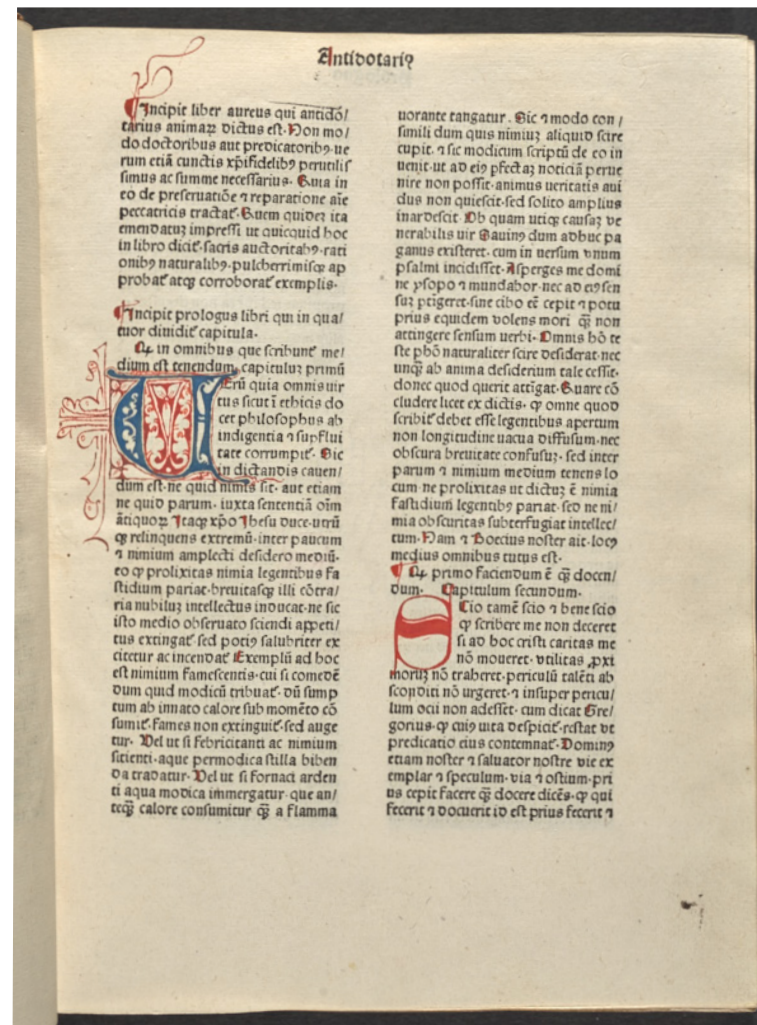 Antidotariꝰ
Incipit liber aureus qui antido/
tarius animaꝝ dictus est. Non mo/
do doctoribus aut predicatoribꝰ ue
rum etiā cunctis xp̄ifidelibꝰ perutilis
simus ac summe necessarius. Quia in
eo de preseruatiōe ⁊ reparatione aīe
peccatricis tractat᷑. Quem quidez ita
emendatuz impressi ut quicquid hoc
in libro dicit᷑. sacris auctoritabꝰ. rati
onibꝰ naturalibꝰ. pulcherrimisqꝫ ap
probat᷑ atqꝫ corroborat᷑ exemplis.
Incipit prologus libri qui in qua/
tuor diuidit᷑ capitula.
Qꝙ in omnibus que scribunt᷑ me/
dium est tenendum. capituluz primū
UErū quia omnis uir
tus sicut ī ethicis do
cet philosophus ab
indigentia ⁊ supflui
tate corrumpit᷑. Sic
in dictandis cauen/
dum est. ne quid nimis sit. aut etiam
ne quid parum. iuxta sententiā oīm
ātiquoꝝ Itaqꝫ xp̄o Ihesu duce. utrū
qꝫ relinquens extremū. inter paucum
⁊ nimium amplecti desidero mediū.
eo ꝙ prolixitas nimia legentibus fa
stidium pariat. breuitasqꝫ illi cōtra/
ria nubiluz intellectus inducat. ne sic
isto medio obseruato sciendi appeti/
tus extingat᷑ sed potiꝰ salubriter ex
citetur ac incendat᷑ Exemplū ad hoc
est nimium famescentis. cui si comedē
dum quid modicū tribuat᷑. dū sump
tum ab innato calore sub momēto cō
sumit᷑. fames non extinguit᷑. sed auge
tur. Vel ut si febricitanti ac nimium
sitienti. aque permodica stilla biben
da tradatur. Vel ut si fornaci arden
ti aqua modica immergatur. que an/
teqꝫ calore consumitur qꝫ̄ a flamma
uorante tangatur. Sic ⁊ modo con/
simili dum quis nimiuz aliquid scire
cupit. ⁊ sic modicum scriptū de eo in
uenit. ut ad eiꝰ pfectaz noticiā perue
nire non possit. animus ueritatis aui
dus non quiescit. sed solito amplius
inardescit. Ob quam utiqꝫ causaz ve
nerabilis uir Gauinꝰ dum adhuc pa
ganus existeret. cum in uersum vnum
psalmi incidisset. Asperges me domi
ne ysopo ⁊ mundabor. nec ad eiꝰ sen
suz ptigeret. sine cibo eē cepit ⁊ potu
prius equidem volens mori qꝫ̄ non
attingere sensum uerbi. Omnis hō te
ste phō naturaliter scire desiderat. nec
unqꝫ ab anima desiderium tale cessit.
donec quod querit attīgat. Quare cō
cludere licet ex dictis. ꝙ omne quod
scribit᷑ debet esse legentibus apertum
non longitudine uacua diffusum. nec
obscura breuitate confusuz. sed inter
parum ⁊ nimium medium tenens lo
cum. ne prolixitas ut dictuz ē nimia
fastidium legentibꝰ pariat. sed ne ni/
mia obscuritas subterfugiat intellec/
tum. Nam ⁊ Boecius noster ait. locꝰ
medius omnibus tutus est.
Qꝙ primo faciendum ē qꝫ̄ docen/
dum. Capitulum secundum.
SCio tamē scio ⁊ bene scio
ꝙ scribere me non deceret
si ad hoc cristi caritas me
nō moueret. vtilitas ꝓxi
moruz nō traheret. periculū talēti ab
sconditi nō urgeret. ⁊ insuper pericu/
lum ocii non adesset. cum dicat Gre/
gorius. ꝙ cuiꝰ uita despicit᷑. restat vt
predicatio eius contemnat᷑. Dominꝰ
etiam noster ⁊ saluator nostre vie ex
emplar ⁊ speculum. via ⁊ ostium. pri
us cepit facere qꝫ̄ docere dicēs. ꝙ qui
fecerit ⁊ docuerit id est prius fecerit ⁊